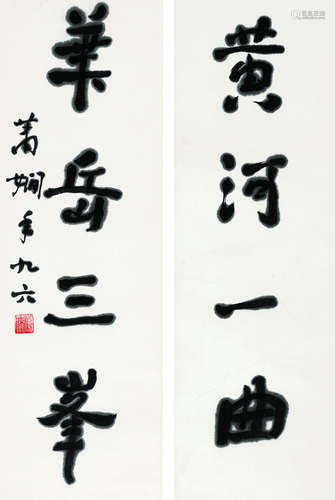 黄河一曲
華岳三峯
萧娴年九六